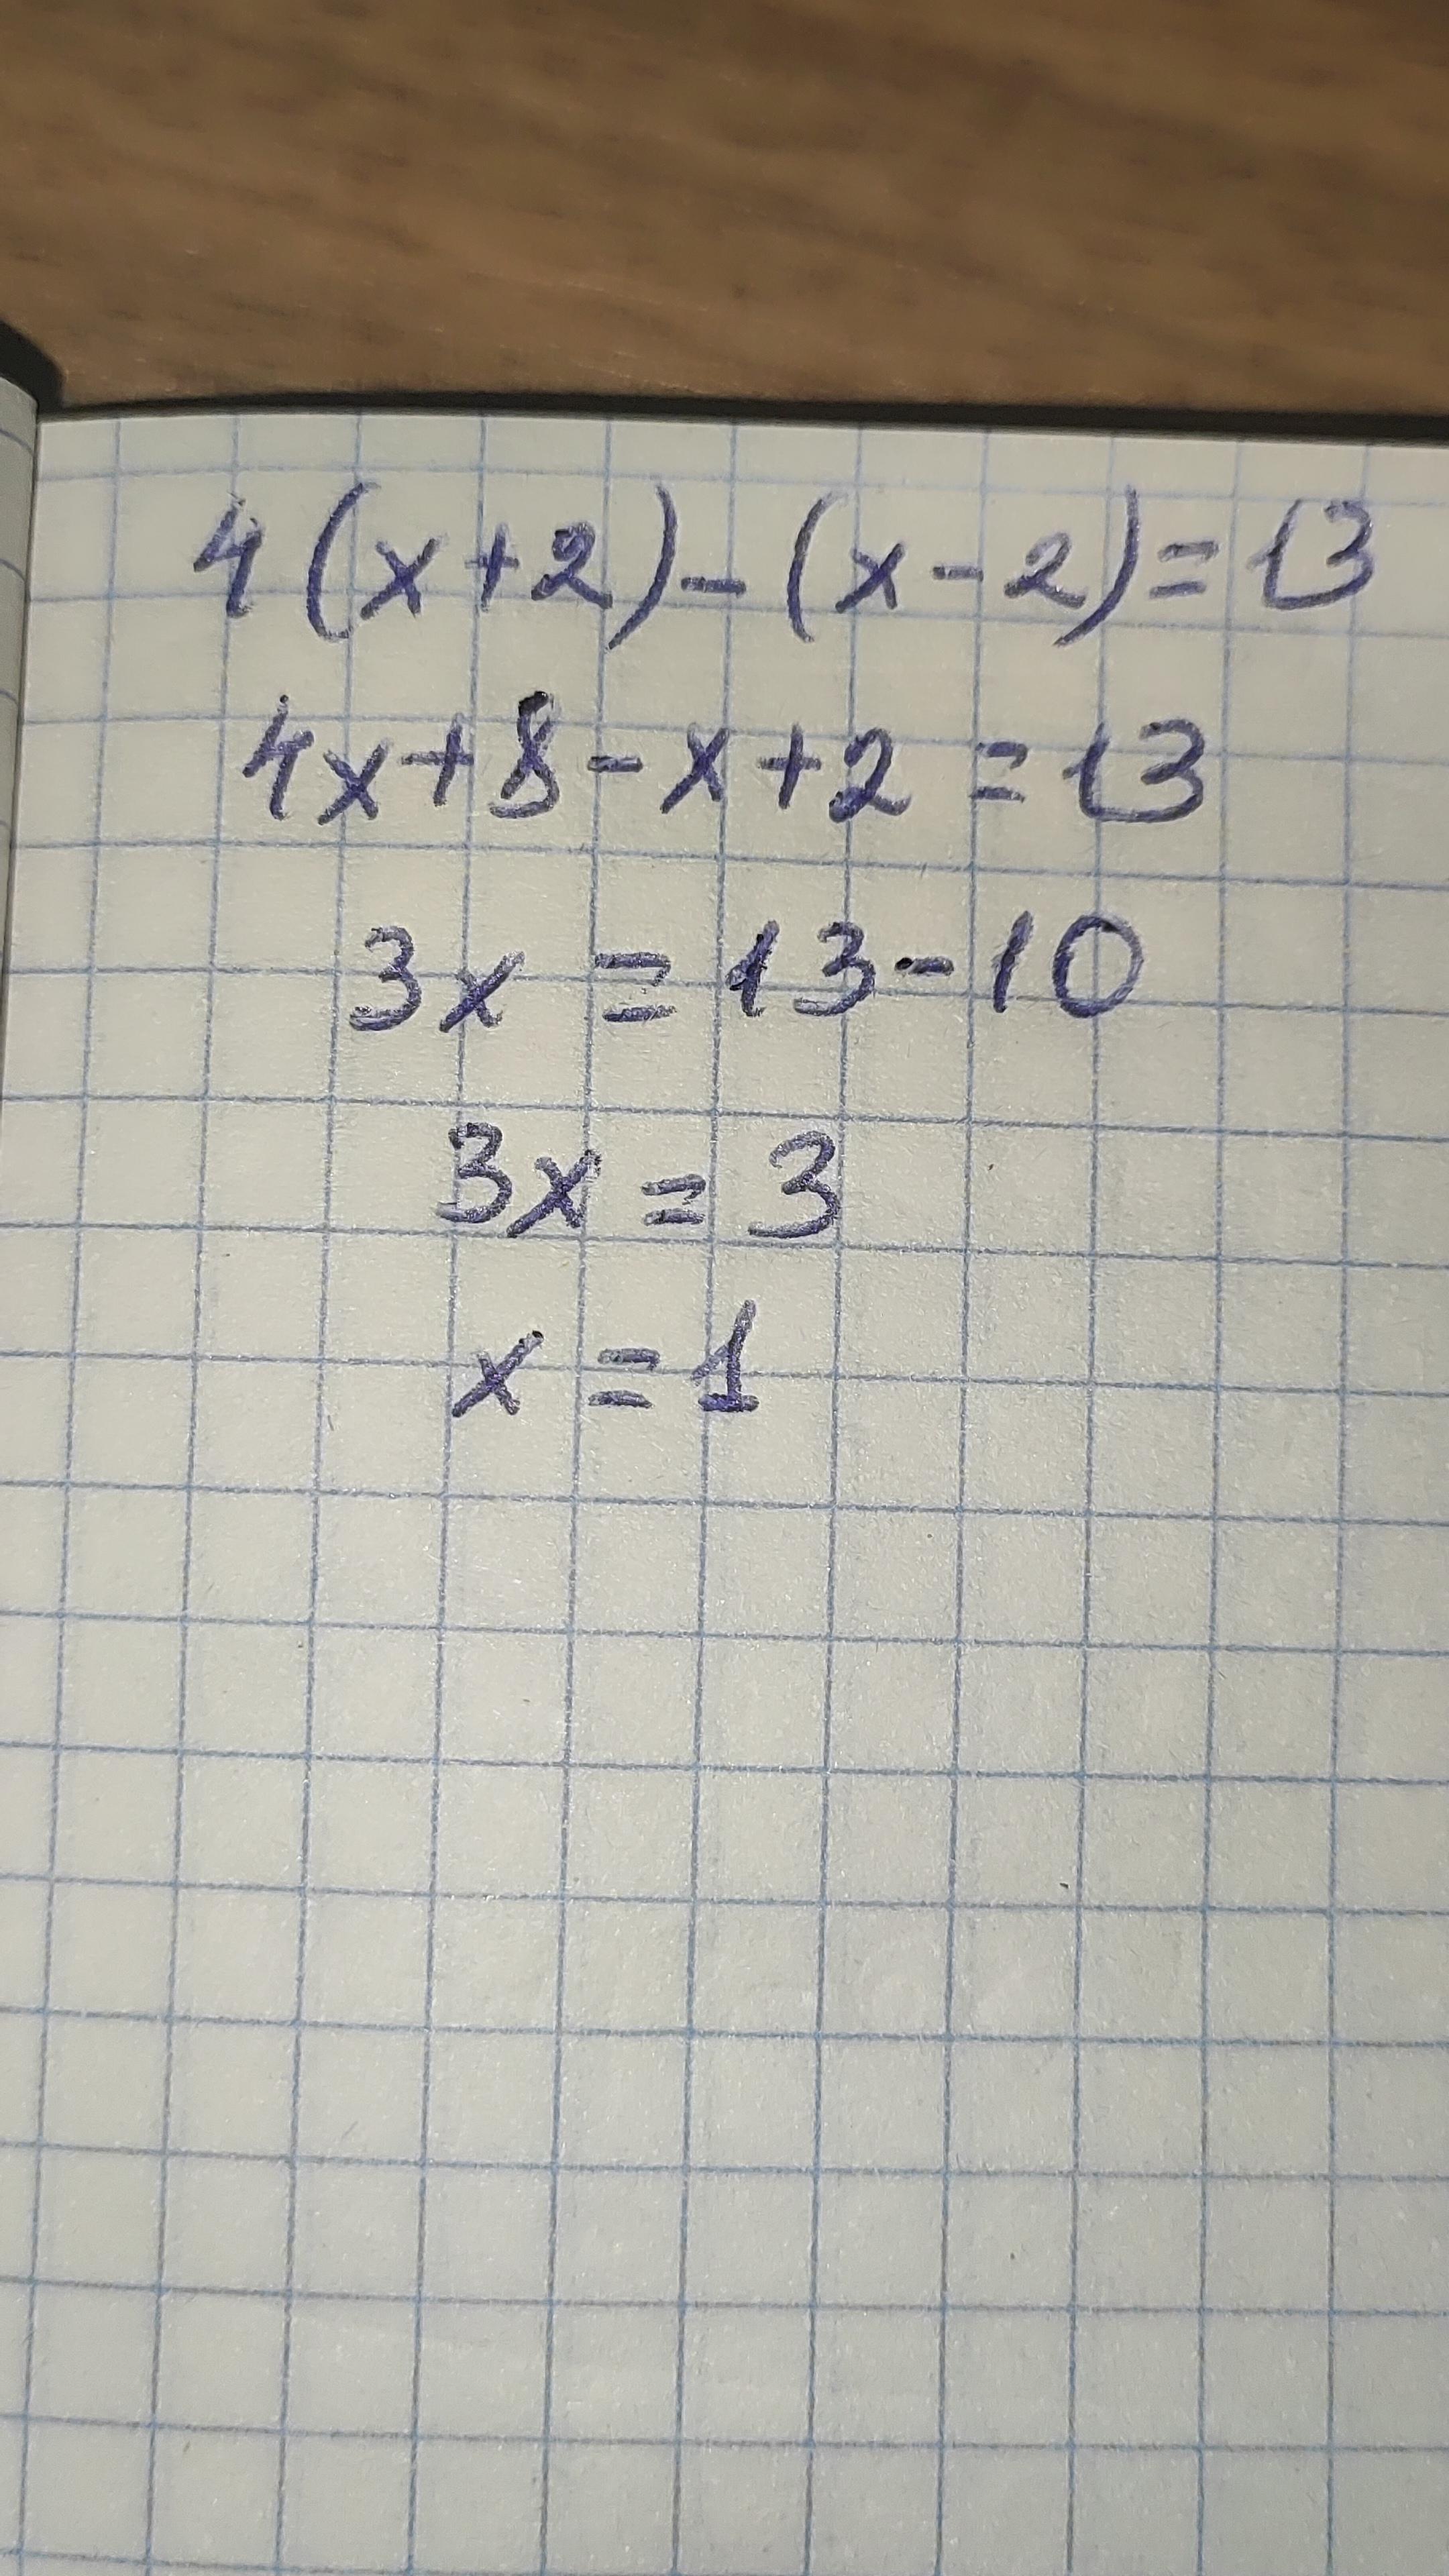 4(x+2)-(x-2)=13
4x+8-x+2=13
3x=13-10
3x=3
x=1